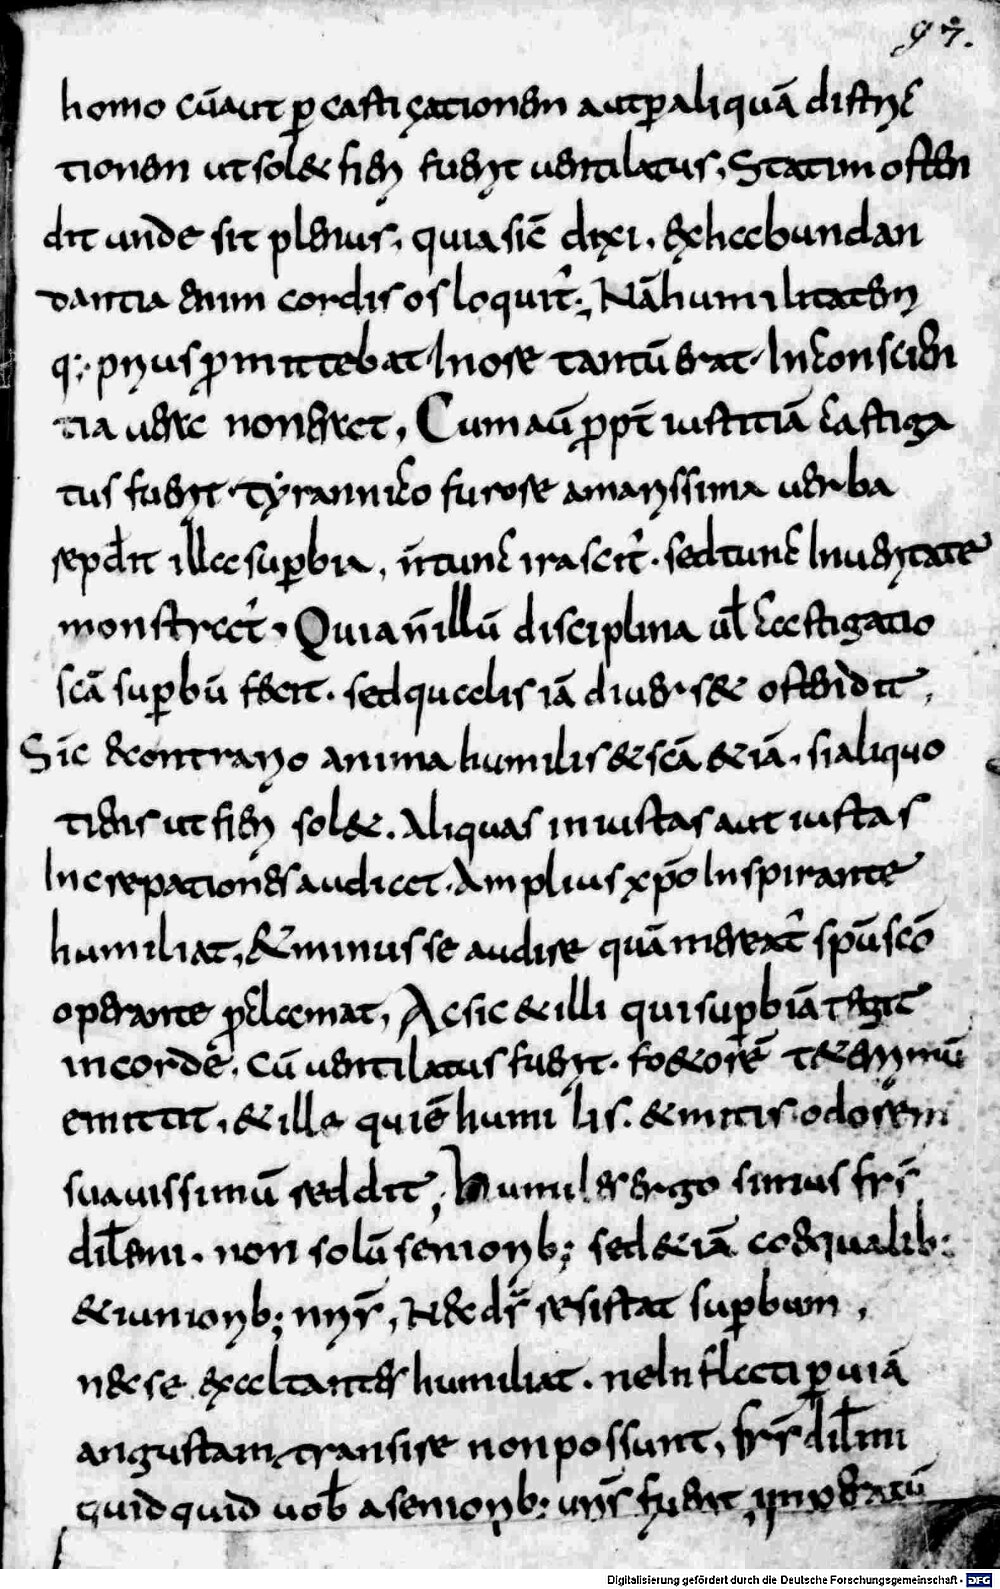 97.
homo cū aut p castigationem aut p aliquā distric
tionem ut solet fieri fuerit uentilatus, Statim osten
dit unde sit plenus, quia sic dixi. ex habundan
dantia enim cordis os loquit; Nā humilitatem
q: prius pmittebat In ore tantū erat. In conscien
tia uero non erat, Cum aū ppt iustitiā castiga
tus fuerit tyrannico furore amarissima uerba
reddit illa supbia, n tunc irascit. sed tunc In ueritate
monstrat. Quia n illū disciplina ul castigatio
scā supbū fecit. sed qualis iā diu esset ostendit,
Sic & contrario anima humilis & scā & iā. si aliquo
tiens ut fieri solet. Aliquas iniustas aut iustas
Increpationes audiat. Amplius xpo Inspirante
humiliat, & minus se audire quā mereat spū scō
operante pclamat, Ac sic & illi qui supbiā tegit
in corde. cū uentilatus fuerit. foetorē teterrimū
emittit, & ille qui ē humilis. & mitis odorem
suauissimū reddit, Humiles ergo simus frs
dilemi. non solū seniorib; sed & iā coequalib:
& iuniorib; nrs, Ne ds resistat supbum,
ne se exaltantes humiliat. ne Inflecti p uiā
angustam transire non possunt, frs dilmi
quidquid uob a seniorib: urs fuerit imperatū
Digitalisierung gefördert durch die Deutsche Forschungsgemeinschaft - DFG